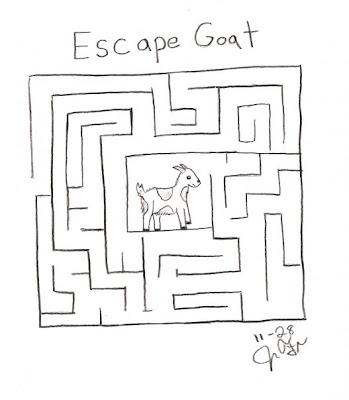 Escape Goat
11-28